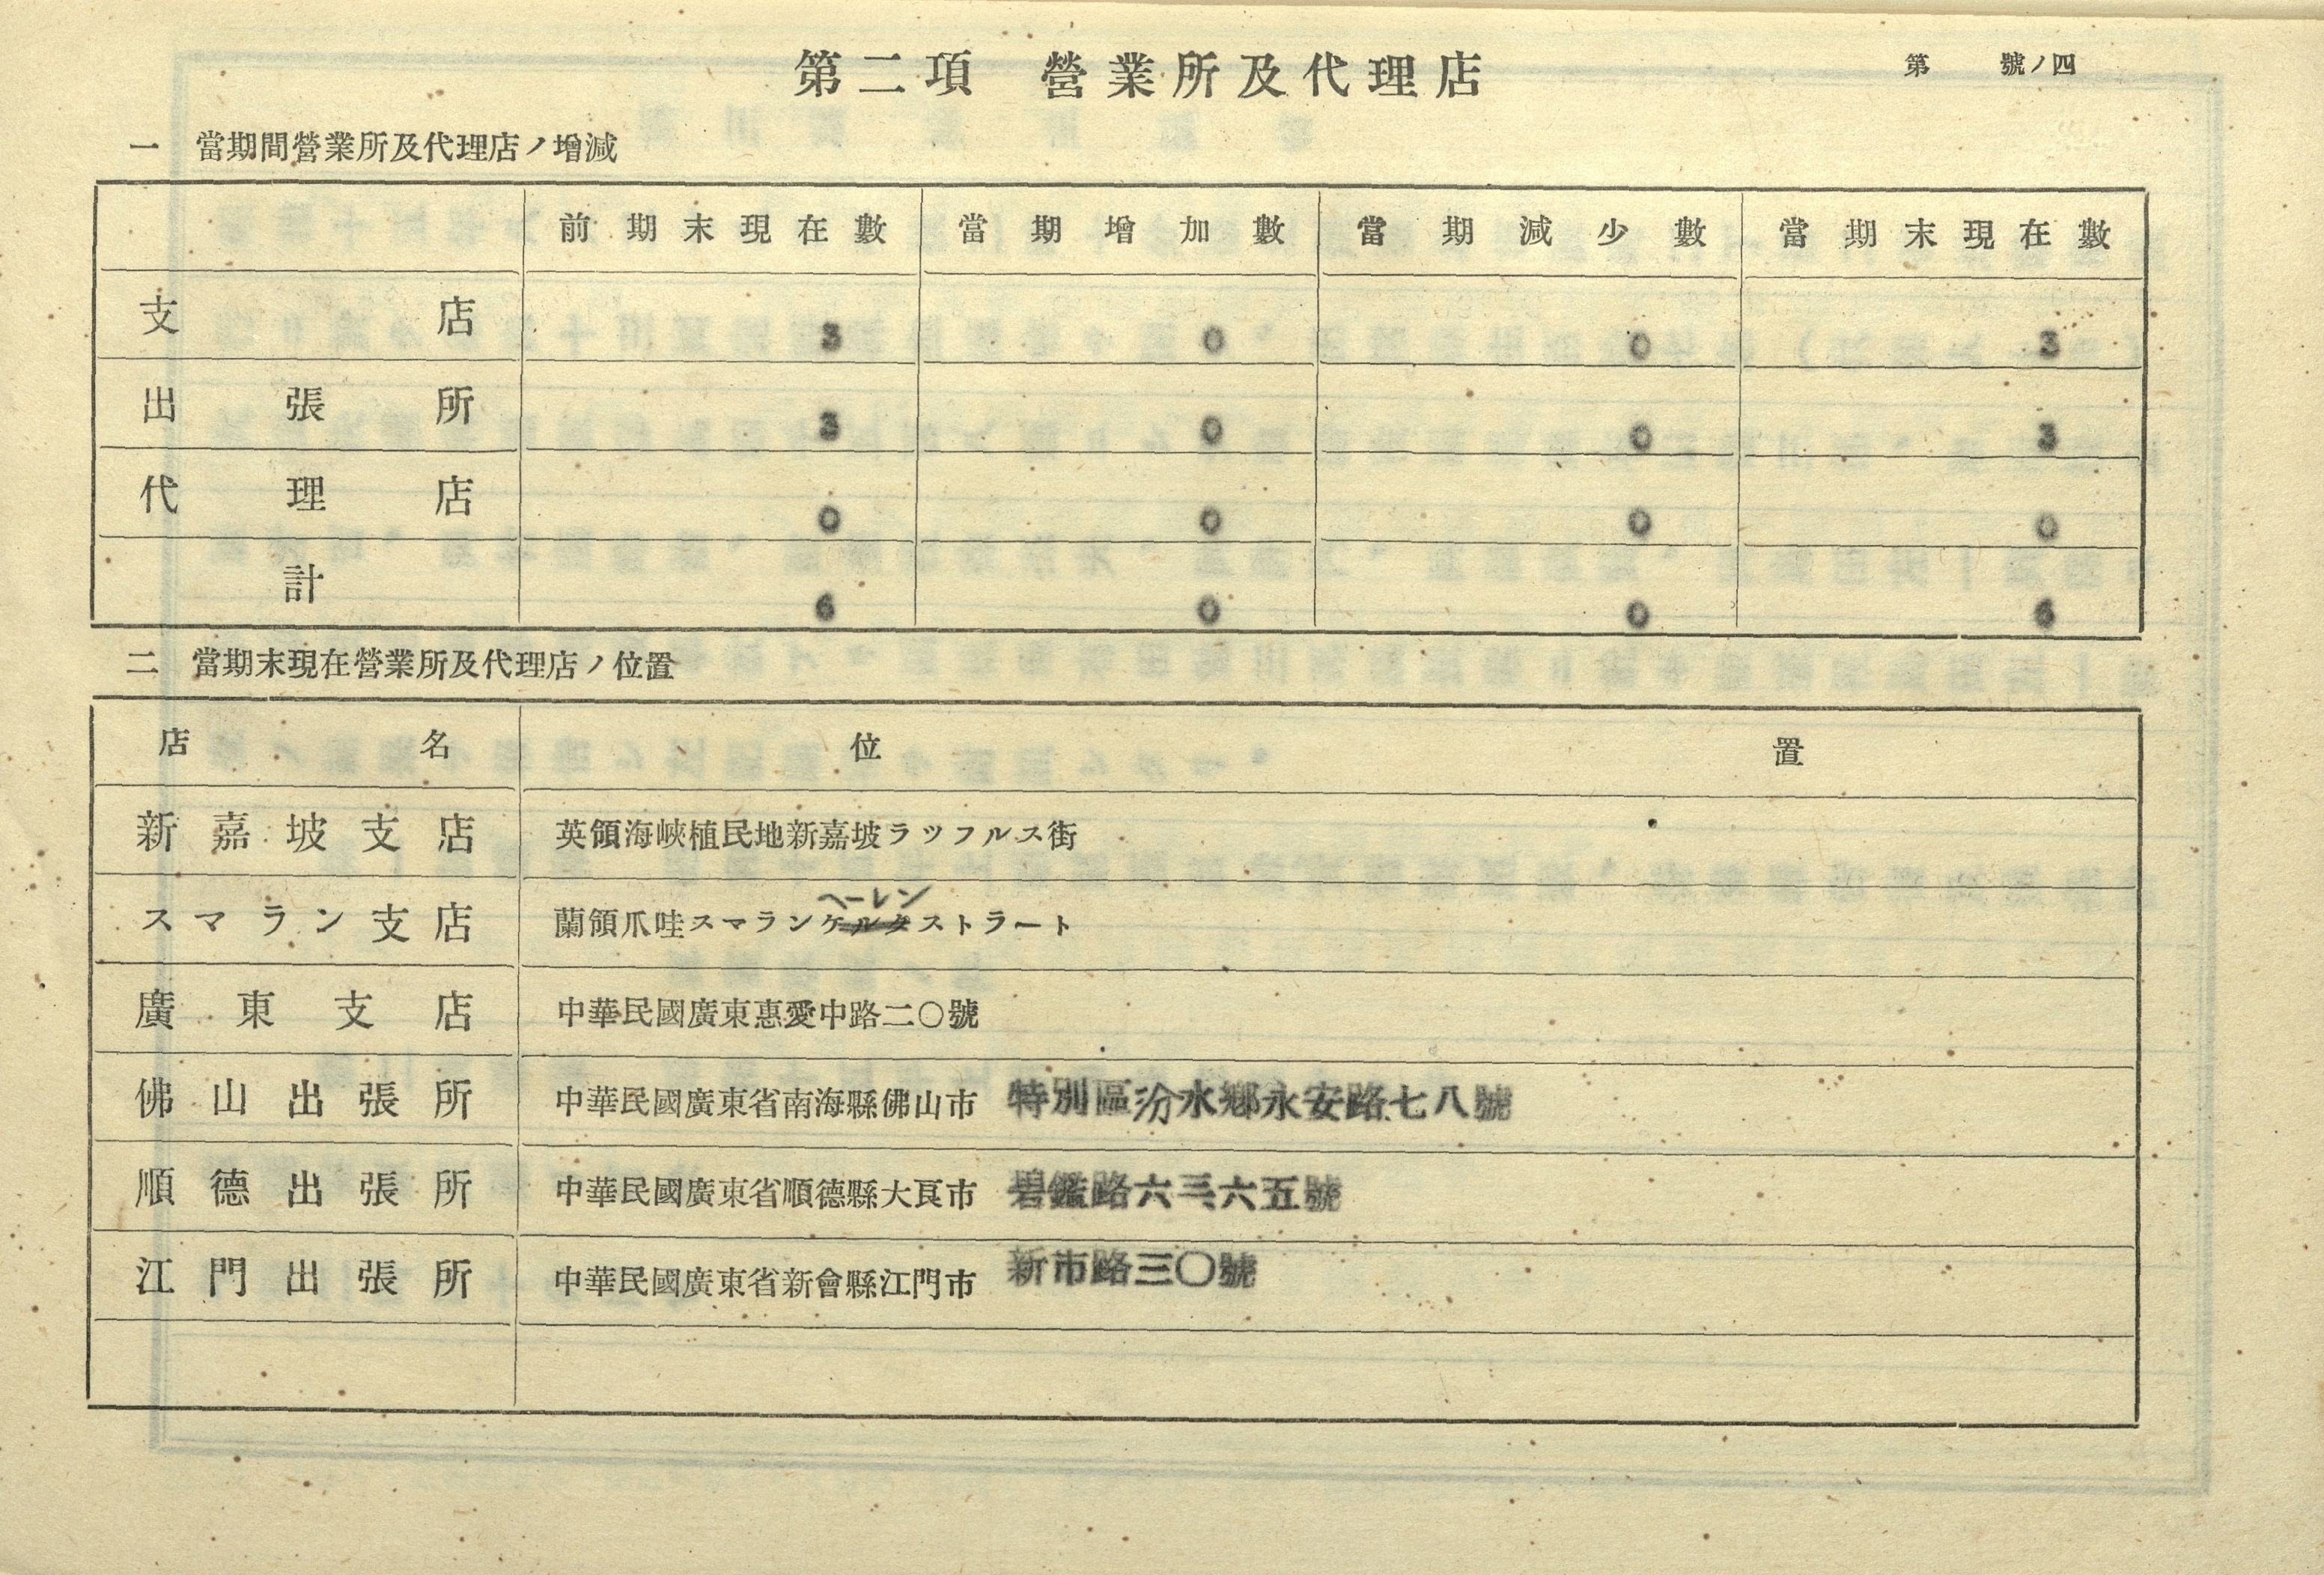 第二項 營業所及代理店
第 號ノ四
一 當期間營業所及代理店ノ增減
前期末現在數 當期增加數 當期減少數 當期末現在數
支店 3 0 0 3
出張所 3 0 0 3
代理店 0 0 0 0
計 6 0 0 6
二 當期末現在營業所及代理店ノ位置
店名 位置
新嘉坡支店 英領海峽植民地新嘉坡ラツフルス街
ヘーレン
スマラン支店 蘭領爪哇スマランケルクストラート
廣東支店 中華民國廣東惠愛中路二〇號
佛山出張所 中華民國廣東省南海縣佛山市 特別區汾水鄕永安路七八號
順德出張所 中華民國廣東省順德縣大良市 碧鑑路六三六五號
江門出張所 中華民國廣東省新會縣江門市 新市路三〇號